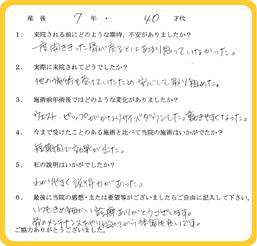 産後 7 年・ 40 才代
1. 来院される前にどのような期待、不安がありましたか？
一度歪ききった骨が戻るとはあまり思っていなかった。
2. 実際に来院されてどうでしたか？
他の施術も受けていたため安心して取り組めた。
3. 施術前年齢後ではどのような変化がありましたか？
ウエスト ヒップが サイズダウンした。動きやすくなった。
4. 今まで受けたことのある施術と比べて当院の施術はいかがでたか？
短期間で効果が出た。
5. 私の説明はいかがでしたか？
わかりやすく説得力があった。
6. 最後に当院の感想・または要望等がございましたらご自由に記入して下さい。
いつもきめ細かい診療ありがとうございます。
メンテナンス
ご協力ありがとうございました。